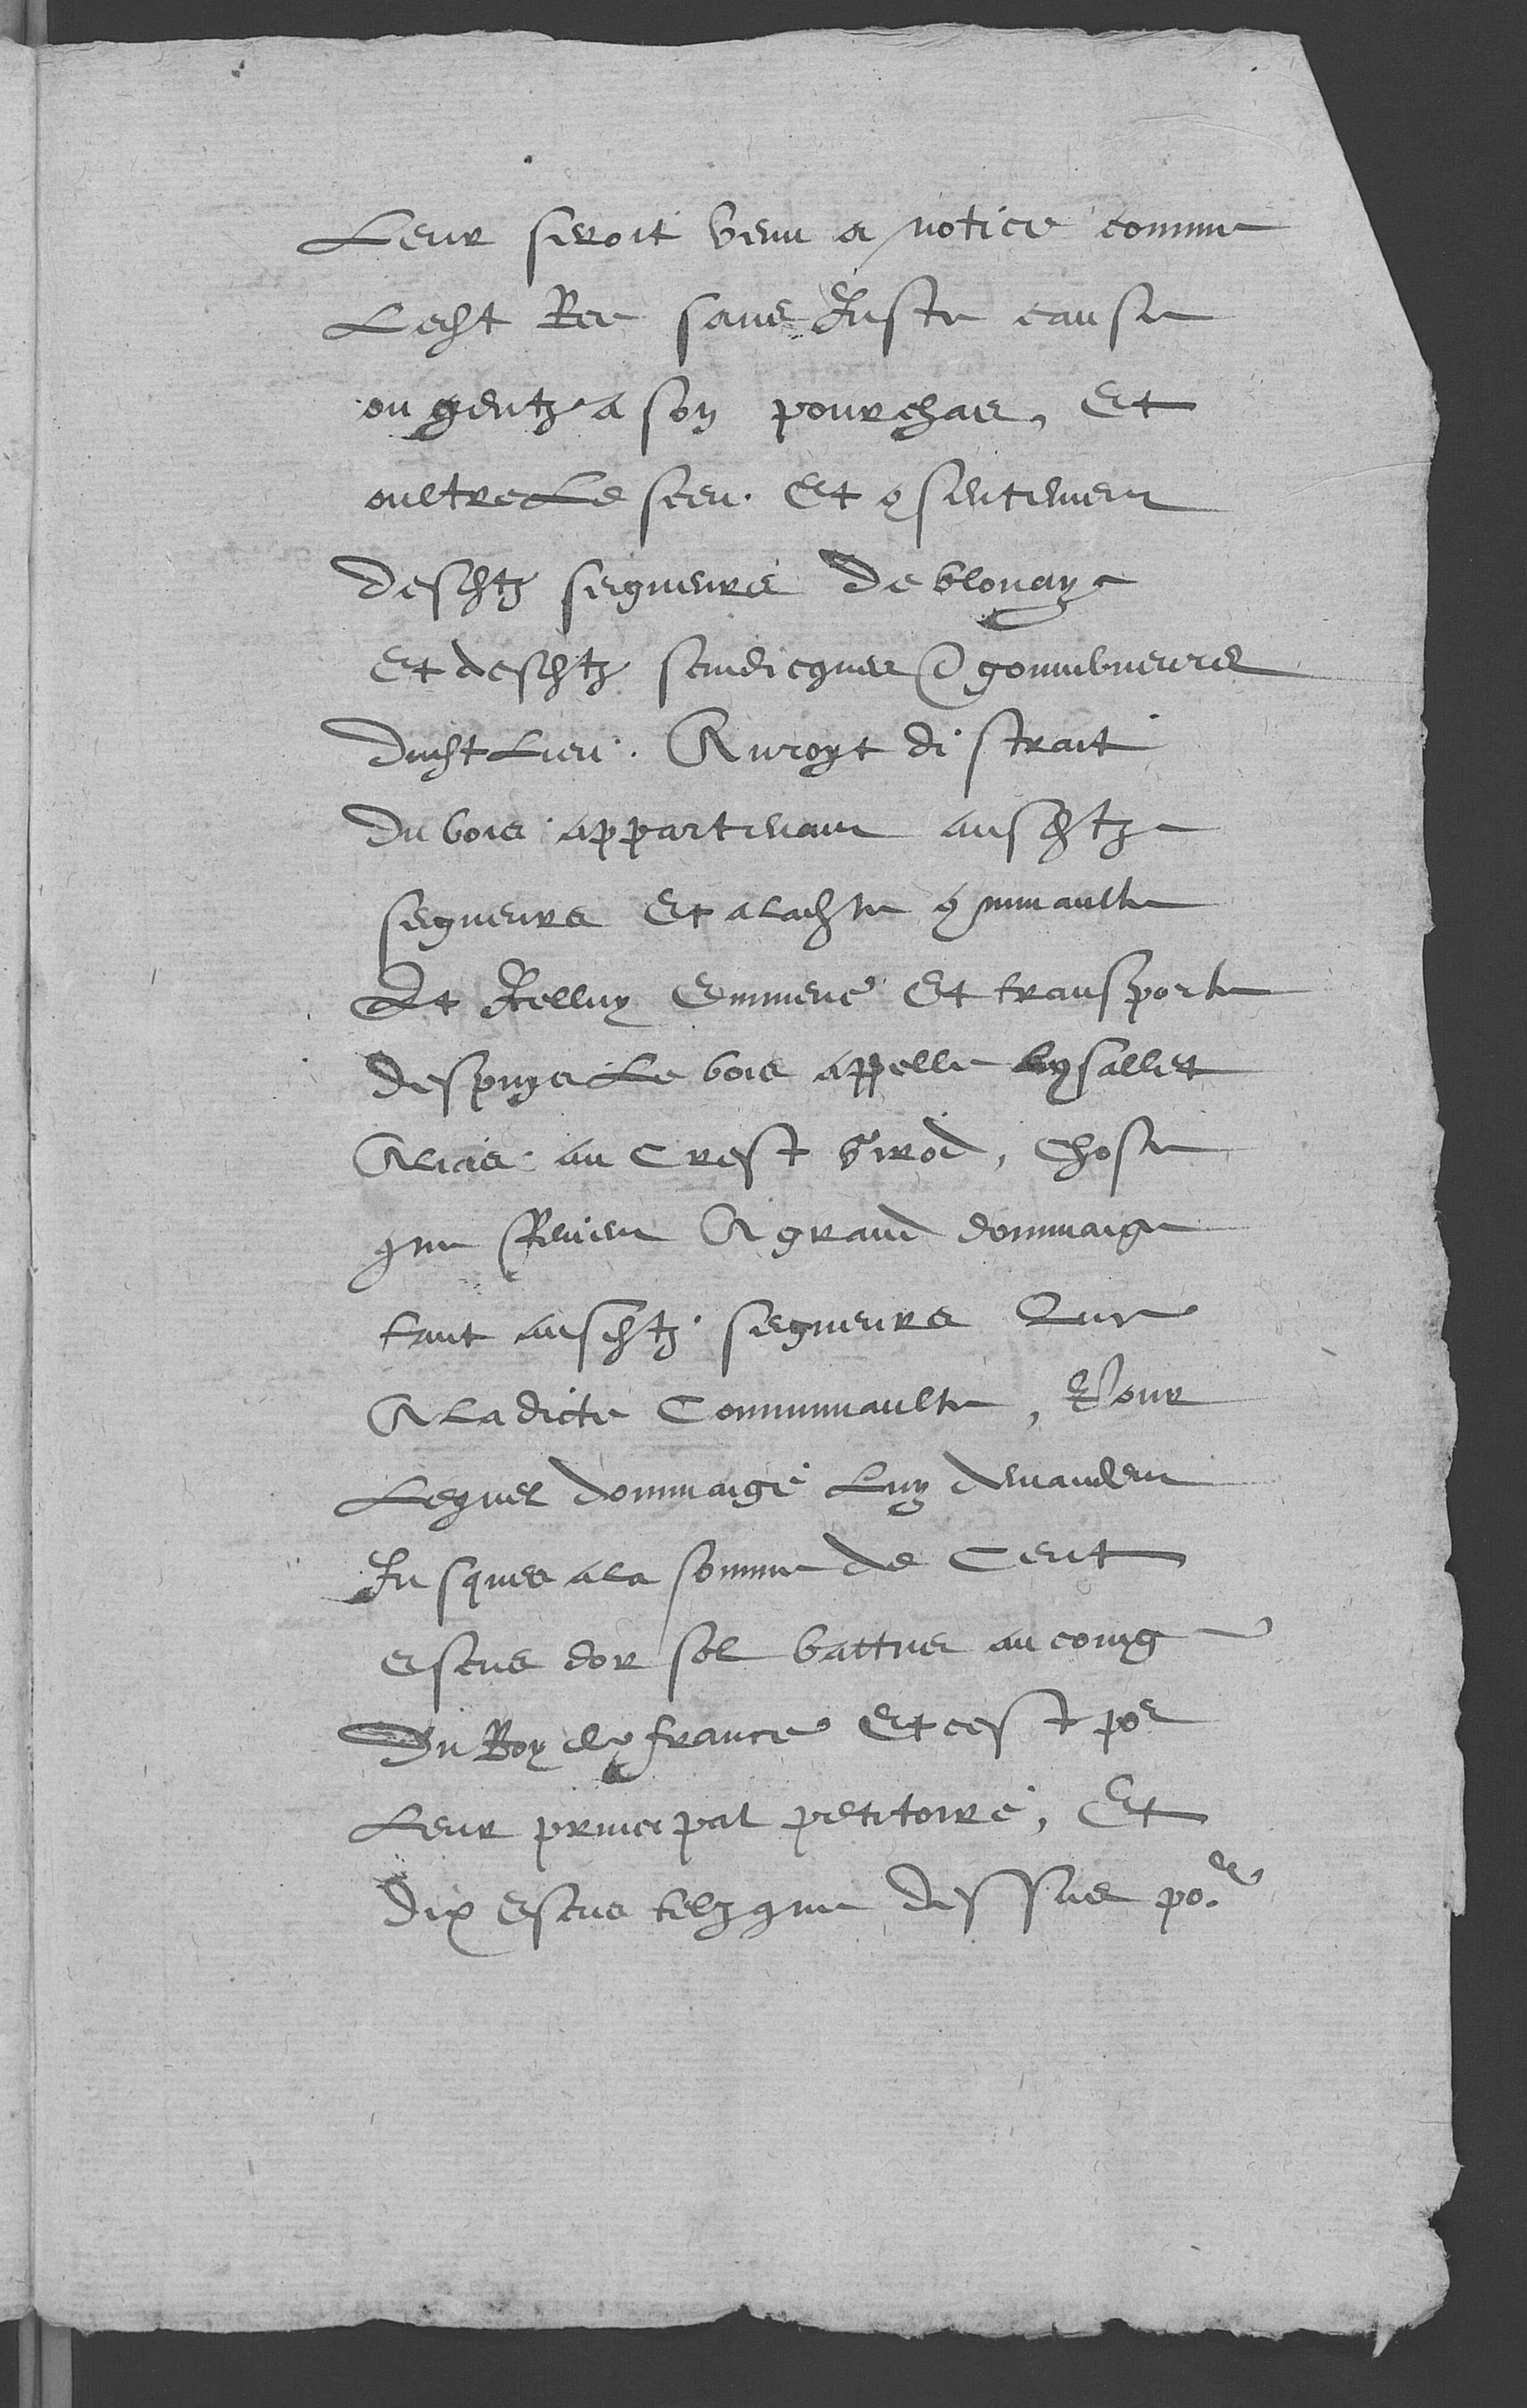 Leur seroit venu a notice comme
Ledit Ree sans Juste cause
ou gentz a son pourchas, Et
oultre Le sceu Et consentement
desditz seigneurs de blonay
Et desditz sindicques & gouverneurs
dudit Lieu. Auroyt distrait
du bois appartenant ausditz
segneurs Et a ladite communaulte
Et Icelluy Emmene Et transporte
despuys Le bois appelle lysallet
Alias au Crest Girod, Chose
que Revient A grand dommaige
tant ausditz segneurs Que
A la dicte Communaulte, Pour
Lequel dommaige Luy demandent
Jusques a la somme de Cent
Escus dor sol battus au coing
Du Roy de france Et cest por
Leur principal petitoire, Et
Dix Escus telz que dessus po.r